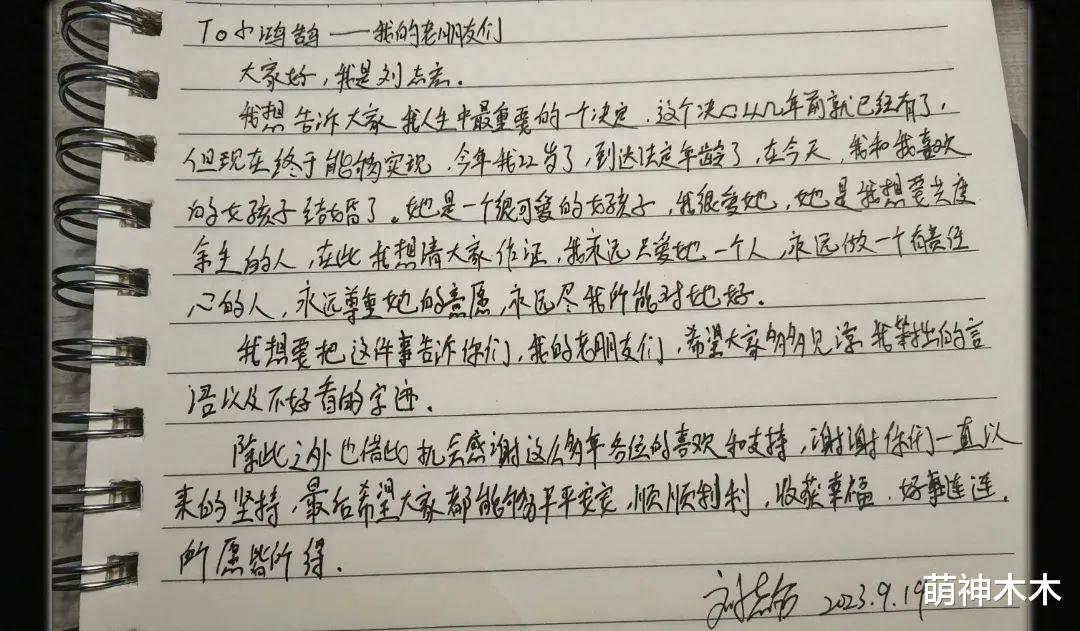 To 小鸿鹄——我的老朋友们
大家好，我是刘志宏。
我想告诉大家我人生中最重要的一个决定，这个决心从几年前就已经有了，
但现在终于能够实现，今年我22岁了，到达法定年龄了，在今天，我和我喜欢
的女孩子结婚了。她是一个很可爱的女孩子，我很爱她，她是我想要共度
余生的人，在此我想请大家作证，我永远只爱她一个人，永远做一个有责任
心的人，永远尊重她的意愿，永远尽我所能对她好。
我想要把这件事告诉你们，我的老朋友们，希望大家多多见谅我笨拙的言
语以及不好看的字迹。
除此之外也借此机会感谢这么多年各位的喜欢和支持，谢谢你们一直以
来的坚持，最后希望大家都能够平平安安，顺顺利利，收获幸福，好事连连，
所愿皆所得。
刘志宏 2023.9.19
萌神木木